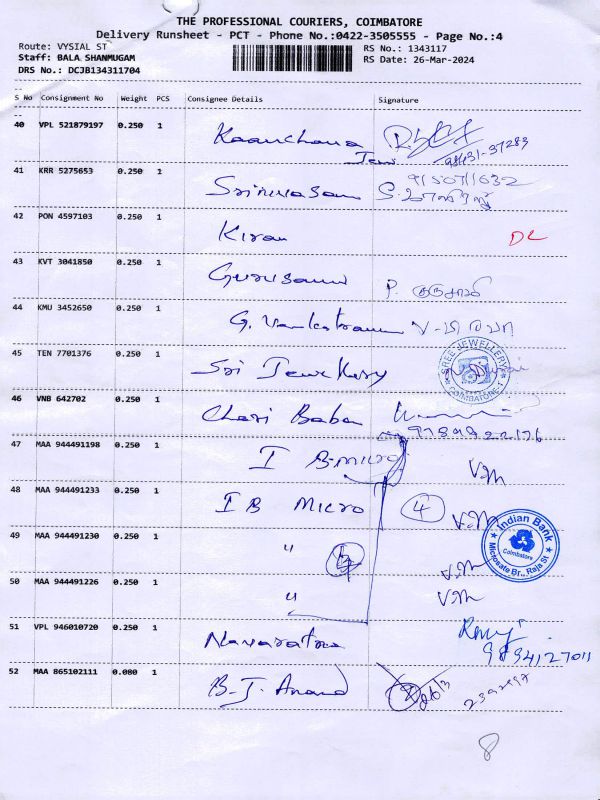 THE PROFESSIONAL COURIERS, COIMBATORE
Delivery Runsheet - PCT - Phone No.:0422-3505555 - Page No.:4
Route: VYSIAL ST
RS No.: 1343117
Staff: BALA SHANMUGAM
RS Date: 26-Mar-2024
DRS No.: DCJB134311704
--
S No Consignment No Weight PCS Consignee Details Signature
--
40 VPL 521879197 0.250 1 Kaanchana
98431-37283
41 KRR 5275653 0.250 1 Srinivasan 9150711632
42 PON 4597103 0.250 1 Kiran DL
43 KVT 3041850 0.250 1 Gurusami P. குருசாமி
44 KMU 3452650 0.250 1 G. Venkatraman
45 TEN 7701376 0.250 1 Sri Jewellery
SREE JEWELLERY
COIMBATORE-1
46 VNB 642702 0.250 1 Chari Baba
47 MAA 944491198 0.250 1 I B-micro V.M
48 MAA 944491233 0.250 1 I B Micro 4 V.M
49 MAA 944491230 0.250 1 " V.M
Indian Bank
Coimbatore
Microsate Br., Raja St
50 MAA 944491226 0.250 1 " V.M
51 VPL 946010720 0.250 1 Navaratna
9894127011
52 MAA 865102111 0.080 1 B-J. Anand 26/3
8